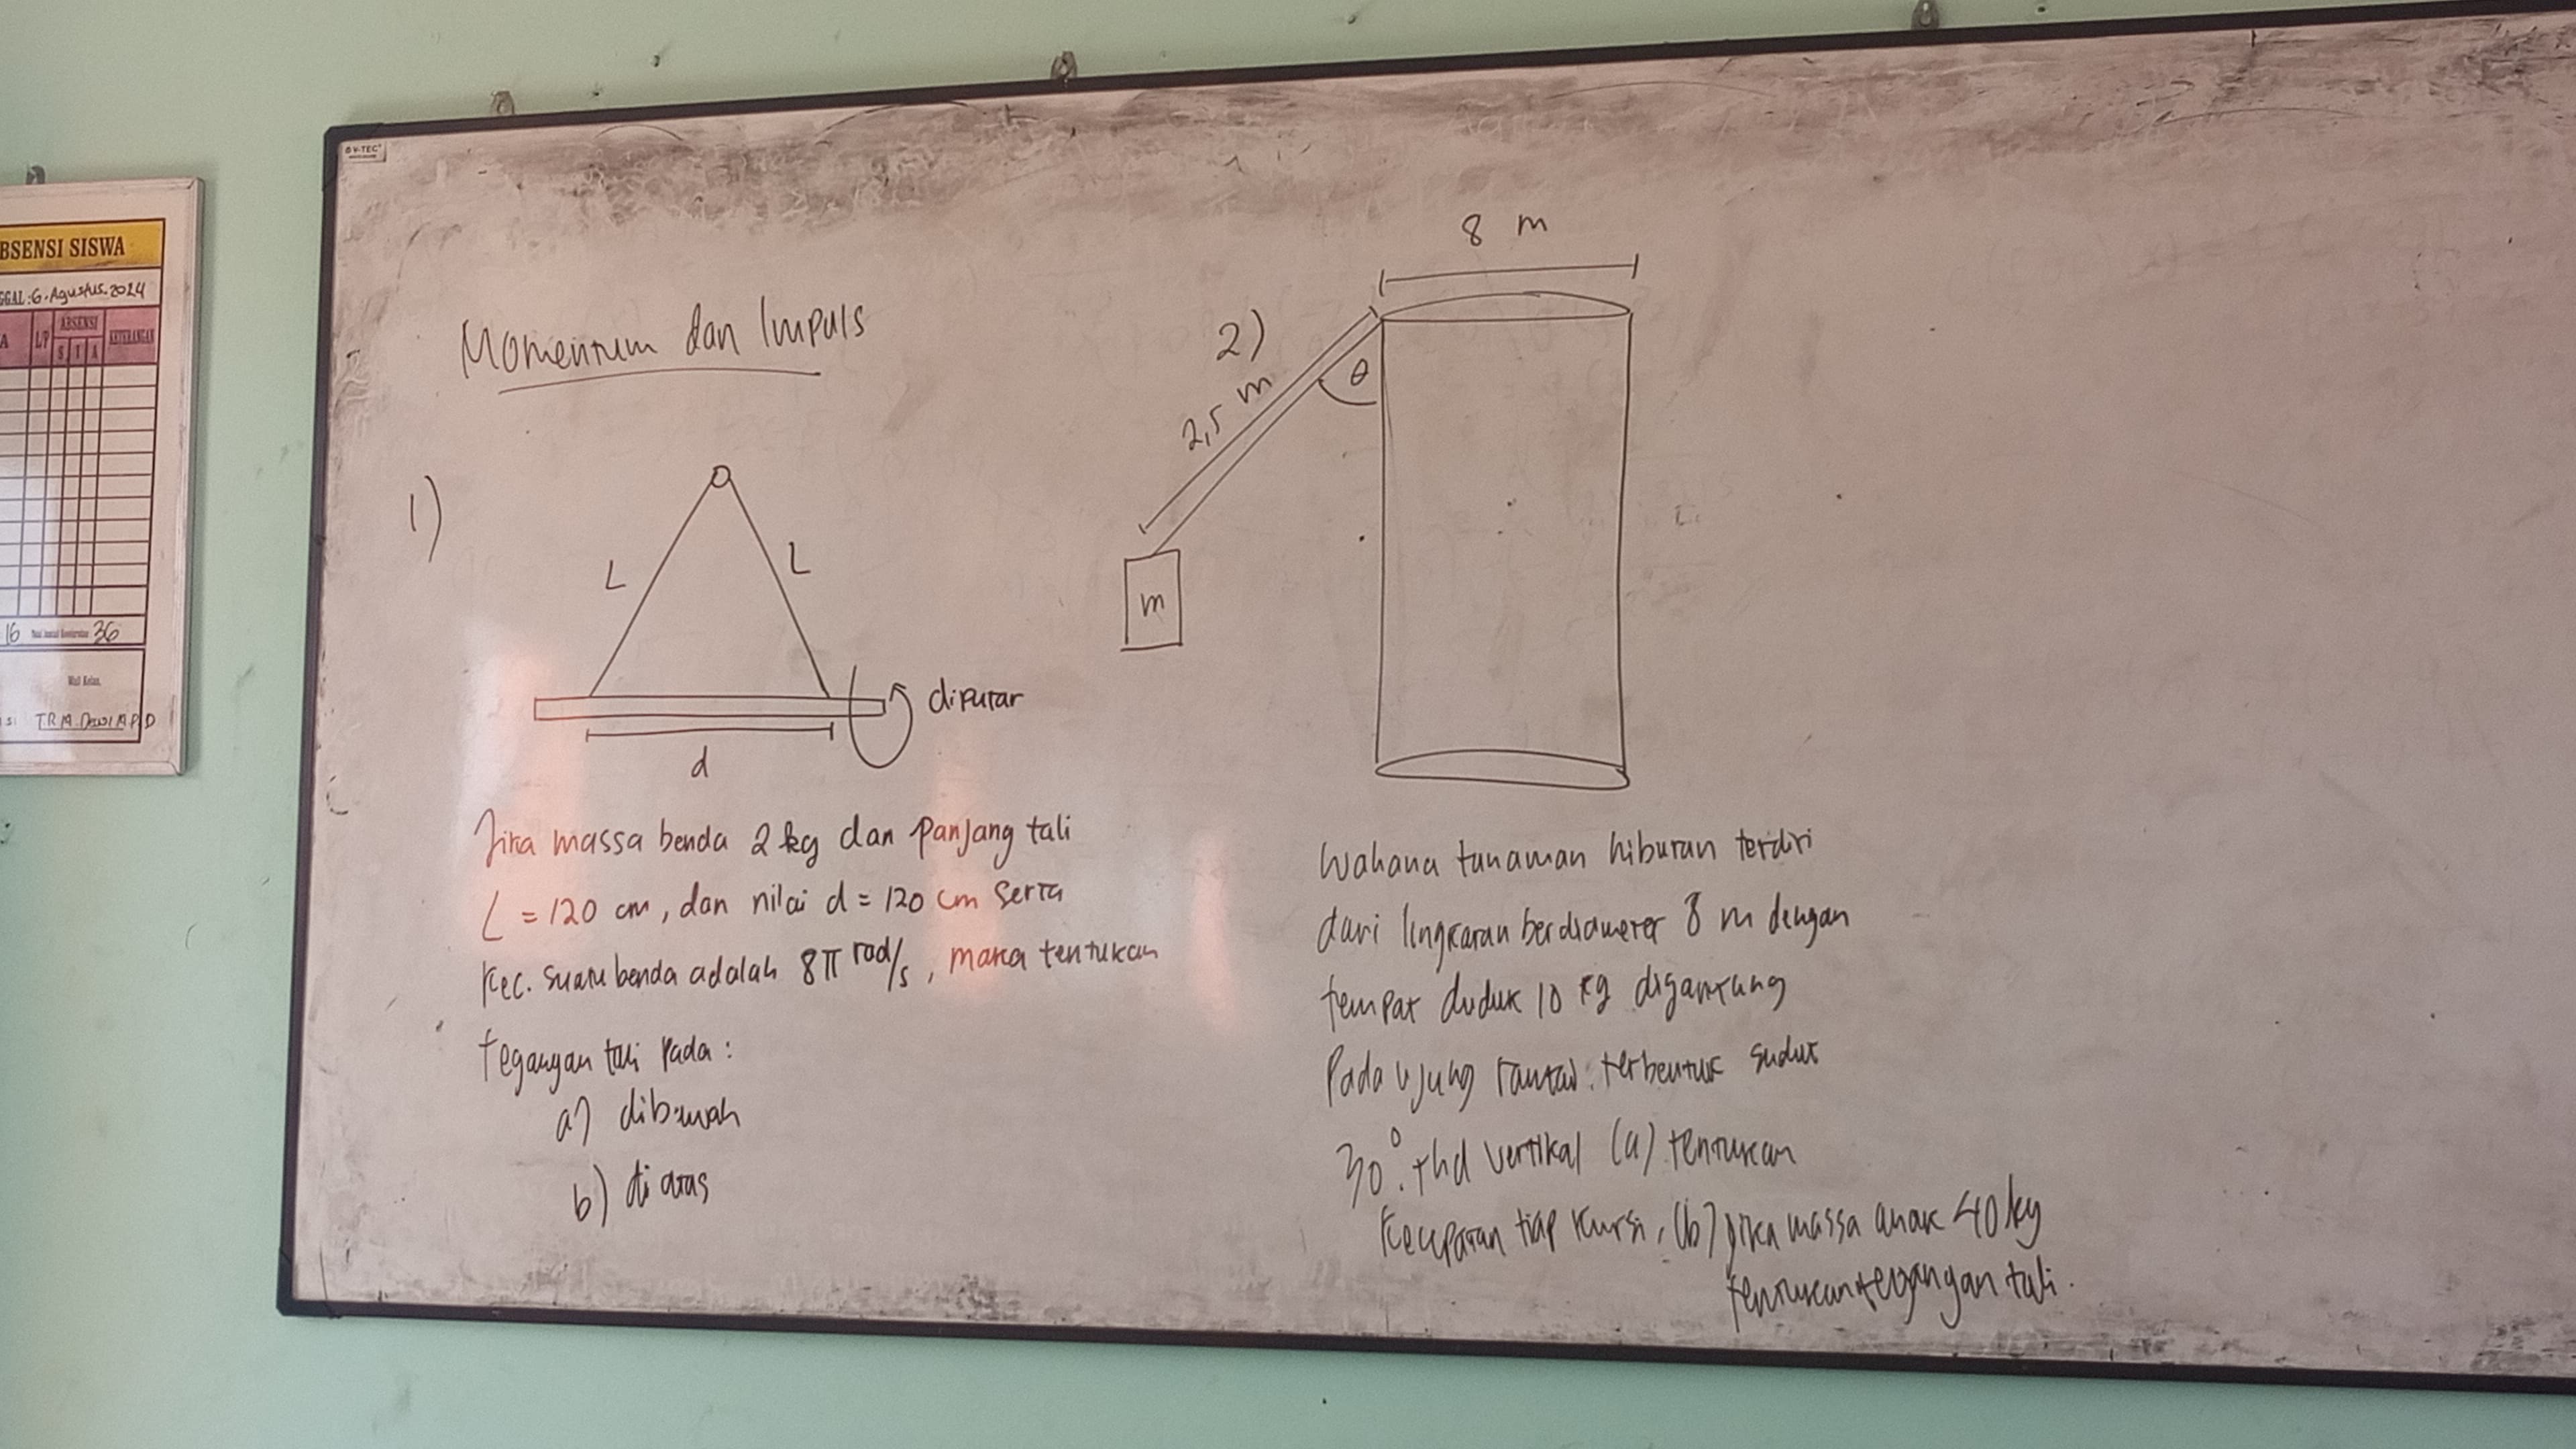 BSENSI SISWA
GGAL : 6. Agustus. 2024
A L/P ABSENSI KETERANGAN
S I A
16 36
Wali Kelas,
V-TEC
Momentum dan Impuls
1)
L L
diputar
d
Jika massa benda 2 kg dan panjang tali
L = 120 cm, dan nilai d = 120 cm serta
kec. suatu benda adalah 8π rad/s, maka tentukan
tegangan tali pada :
a) dibawah
b) di atas
2)
8 m
2,5 m
θ
m
Wahana tanaman hiburan terdiri
dari lingkaran berdiameter 8 m dengan
tempat duduk 10 kg digantung
pada ujung rantai. terbentuk sudut
30°. thd vertikal (a) tentukan
kecepatan tiap kursi, (b) jika massa anak 40 kg
tentukan tegangan tali.